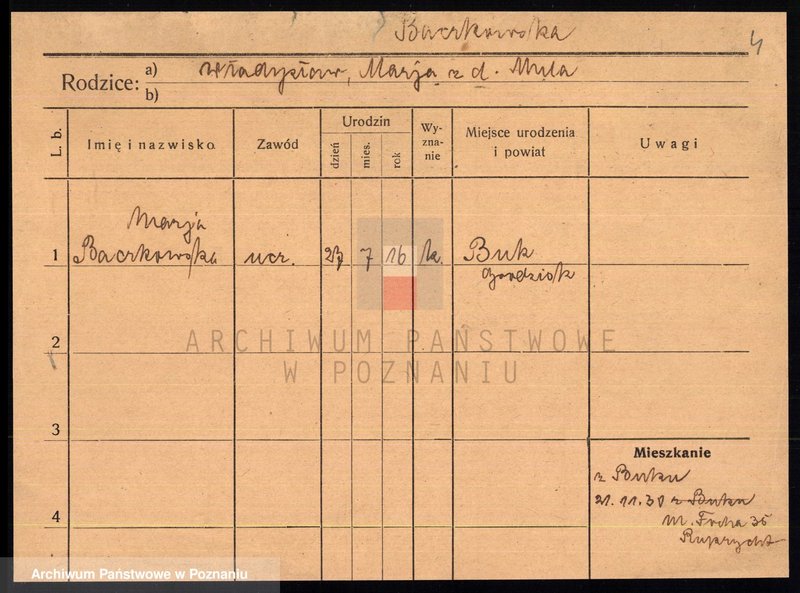 Baczkowska
4
Rodzice: a) Władysław, Marja z d. Myla
b)
L. b.
Imię i nazwisko
Zawód
Urodzin
dzień
mies.
rok
Wy-
zna-
nie
Miejsce urodzenia
i powiat
Uwagi
Marja
1 Baczkowska ucz. 7 16 k. Buk
Grodzisk
2
ARCHIWUM PAŃSTWOWE
W POZNANIU
3
Mieszkanie
z Buku
21.11.30 z Buku
4
m. Focha 35
Archiwum Państwowe w Poznaniu